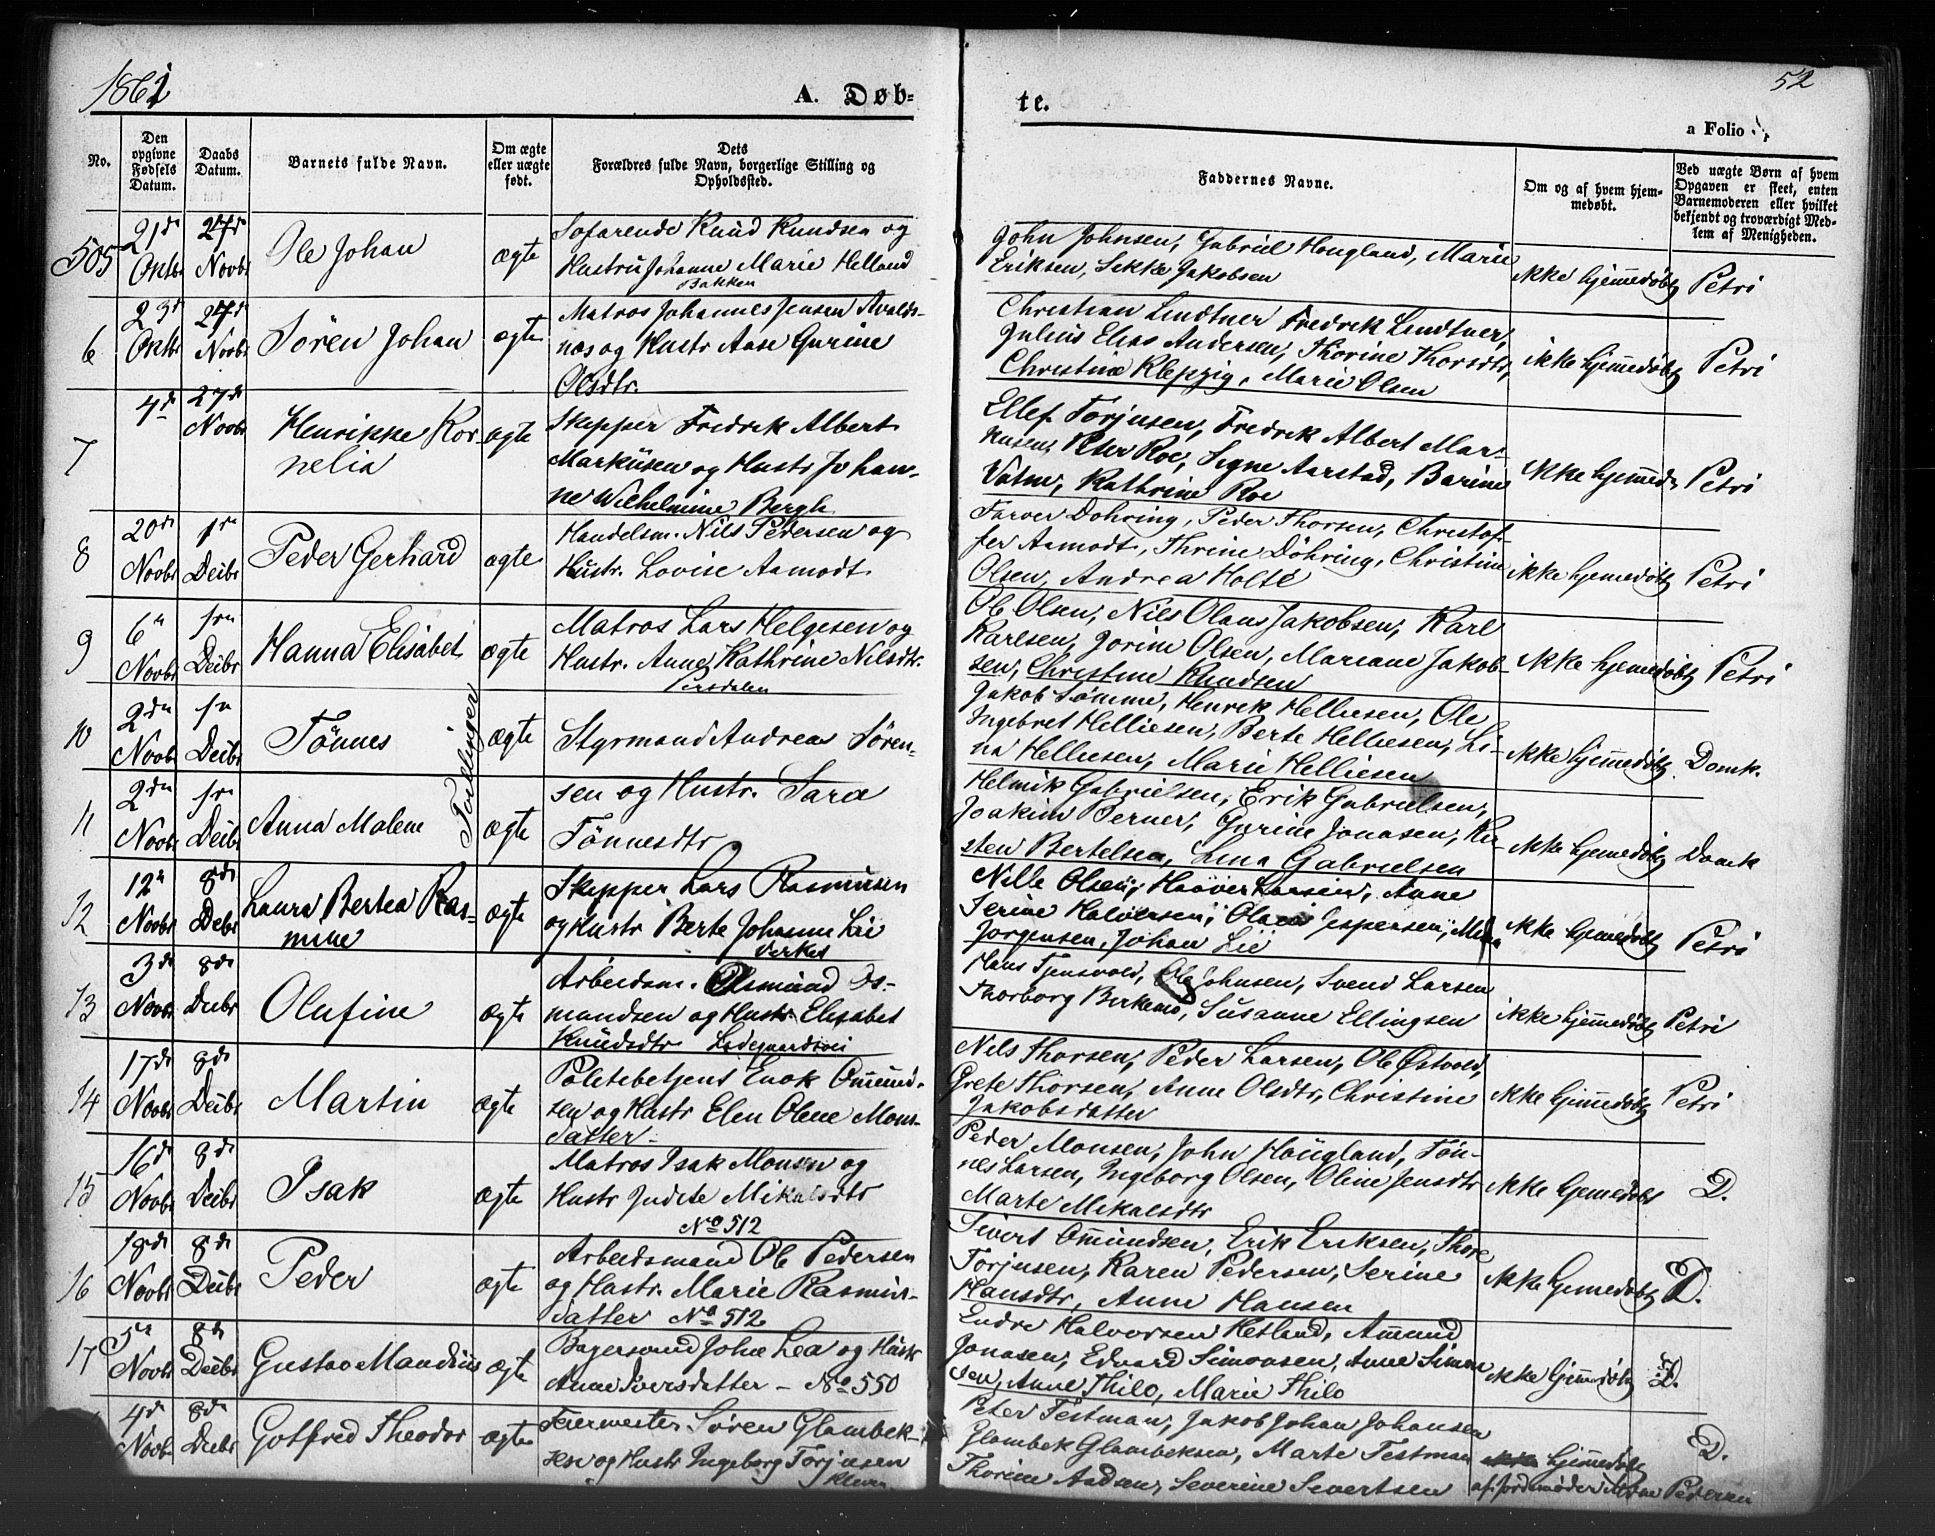 1861
A. Døb-
te.
52
a Folio
No.
Den opgivne Fødsels Datum.
Daabs Datum.
Barnets fulde Navn.
Om ægte eller uægte født.
Dets Forældres fulde Navn, borgerlige Stilling og Opholdssted.
Faddernes Navne.
Om og af hvem hjem-
medøbt.
Ved uægte Børn af hvem
Opgaven er skeet, enten
Barnemoderen eller hvilket
bekjendt og troværdigt Med-
lem af Menigheden.
505
21de Oktbr
27de Novbr
Ole Johan
ægte
Søfarende Knud Knudsen og
Hustru Johanne Marie Helland
Bakken
John Johnsen, Gabriel Hougland, Marie
Eriksen, Sikke Jakobsen
ikke hjemmedøbt
Petri
6
23de Oktbr
27de Novbr
Søren Johan
ægte
Matros Johannes Jensen Avalds-
nes og Hustr Aase Gurine
Olsdtr.
Christian Lindtner Fredrik Lindtner,
Julius Elias Andersen, Thorine Thorsdtr,
Christine Klepzig, Marie Olsen
ikke hjemmedøbt
Petri
7
4de
27de Novbr
Henrikke Kor-
nelia
ægte
Skipper Fredrik Albert
Markusen og Hustr Johan-
ne Wilhelmine Bergh
Ellef Torjusen, Fredrik Albert Mar-
kusen, Peter Roe, Signe Aarstad, Barine
Vatne, Kathrine Roe
ikke hjemmed.
Petri
8
20de Novbr
1ste Deibr
Peder Gerhard
ægte
Handelsm. Nils Pedersen og
Hustr. Lovise Aamodt
Farver Dohring, Peder Thorsen, Christof-
fer Aamodt, Thrine Döhring, Christine
Olsen, Andrea Holte
ikke hjemmedøbt
Petri
9
6te Novbr
1ste Deibr
Hanna Elisabet
ægte
Matros Lars Helgesen og
Hustr. Anne Kathrine Nilsdtr.
Persdalen
Ole Olsen, Nils Olaus Jakobsen, Karl
Karlsen, Jorine Olsen, Mariane Jakob-
sen, Christine Knudsen
ikke hjemmedøbt
Petri
10
2den Novbr
1ste Deibr
Tønnes
Tvillinger
ægte
Styrmand Andreas Søren-
Jakob Sømme, Henrik Helliesen, Ole
Ingebret Helliesen, Berte Helliesen, Li-
na Helliesen, Marie Helliesen
ikke hjemmedøbt
Domk.
11
2den Novbr
1ste Deibr
Anna Malene
ægte
sen og Hustr. Sara
Tønnesdtr
Helmik Gabrielsen, Erik Gabrielsen,
Joakim Berner, Gurine Jonasen, Kir-
sten Bertelsen, Lina Gabrielsen
ikke hjemmedøbt
Domk
12
12te Novbr
8de Debr
Laura Bertea Ras-
mine
ægte
Skipper Lars Rasmusen
og Hustr Berte Johanne Lie
Verket
Nille Olsen, Haaver Larsen, Anne
Serine Halversen, Olava Jespersen,
Jørgensen, Johan Lie
ikke hjemmedøbt
Petri
13
3de Novbr
8de Deibr
Olufine
ægte
Arbeidsm. Osmund Os-
mundsen og Hustr Elisabet
Knudsdtr Ladegaardsvei
Hans Tjensvold, Ole Johnsen, Svend Larsen
Thorborg Birkemo, Susanne Ellingsen
ikke hjemmedøbt
Petri
14
17de Novbr
8de Deibr
Martin
ægte
Politebetjent Enok Ommund-
sen og Hustr Elen Olene Mons-
datter
Nils Thorsen, Peder Larsen, Ole Østvold,
Grete Thorsen, Anne Olsdtr, Christine
Jakobsdatter
ikke hjemmedøbt
Petri
15
16de Novbr
8de Deibr
Isak
ægte
Matros Isak Monsen og
Hustr Judete Mikalsdtr
No 512
Peder Monsen, John Hougland, Tøn-
nes Larsen, Ingeborg Olsen, Oline Jensdtr
Marte Mikalsdtr
ikke hjemmedøbt
D.
16
18de Novbr
8de Deibr
Peder
ægte
Arbeidsmand Ole Pedersen
og Hustr. Marie Rasmus-
datter No 512
Sivert Ommundsen, Erik Eriksen, Thore
Torjusen, Karen Pedersen, Serine
Hansdtr, Anne Hansen
ikke hjemmedøbt
D.
17
5te Novbr
8de Deibr
Gustav Maudius
ægte
Bagersvend John Lea og Hustr
Anne Iversdatter - No 550
Endre Halvorsen Hetland, Ammund
Jonasen, Edvard Simonsen, Anne Simon
sen, Anne Thilo, Marie Thilo
ikke hjemmedøbt
D.
4de Novbr
8de Deibr
Gotfred Theodor
ægte
Feiermester Søren Glambek-
sen og Hustr Ingeborg Torjusen
Peter Testman, Jakob Johan Johansen
Glambek Glambeksen, Marte Testman
Thorine Aadsen, Severine Sivertsen
ikke hjemmedøbt
af jordmoder Pedersen
D.